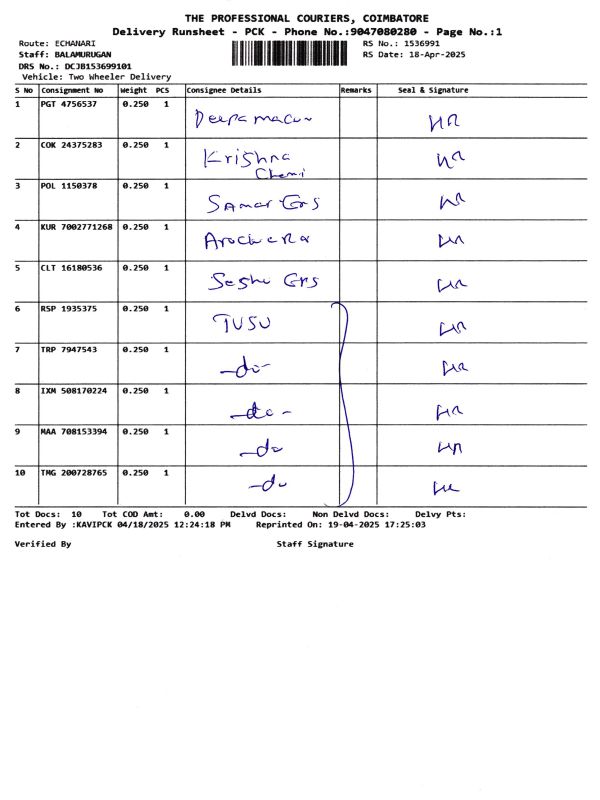 THE PROFESSIONAL COURIERS, COIMBATORE
Delivery Runsheet - PCK - Phone No.:9047080280 - Page No.:1
Route: ECHANARI RS No.: 1536991
Staff: BALAMURUGAN RS Date: 18-Apr-2025
DRS No.: DCJB153699101
Vehicle: Two Wheeler Delivery
S No Consignment No Weight PCS Consignee Details Remarks Seal & Signature
1 PGT 4756537 0.250 1
2 COK 24375283 0.250 1 Krishna
Chemi
3 POL 1150378 0.250 1 Samar
4 KUR 7002771268 0.250 1
5 CLT 16180536 0.250 1
6 RSP 1935375 0.250 1 TUSU
7 TRP 7947543 0.250 1 -do-
8 IXM 508170224 0.250 1 -do-
9 MAA 708153394 0.250 1 -do
10 TMG 200728765 0.250 1 -do
Tot Docs: 10 Tot COD Amt: 0.00 Delvd Docs: Non Delvd Docs: Delvy Pts:
Entered By :KAVIPCK 04/18/2025 12:24:18 PM Reprinted On: 19-04-2025 17:25:03
Verified By Staff Signature